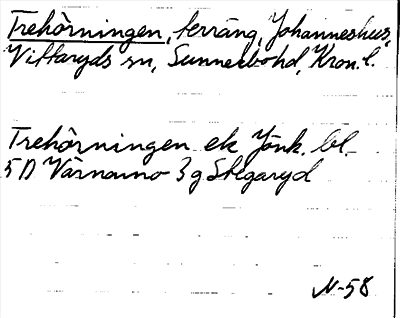 Trehörningen, terräng, Johanneshus,
Vittaryds sn, Sunnerbohd, Kron. l.
Trehörningen ek Jönk. bl.
5D Värnamo 3g Stegaryd
N-58